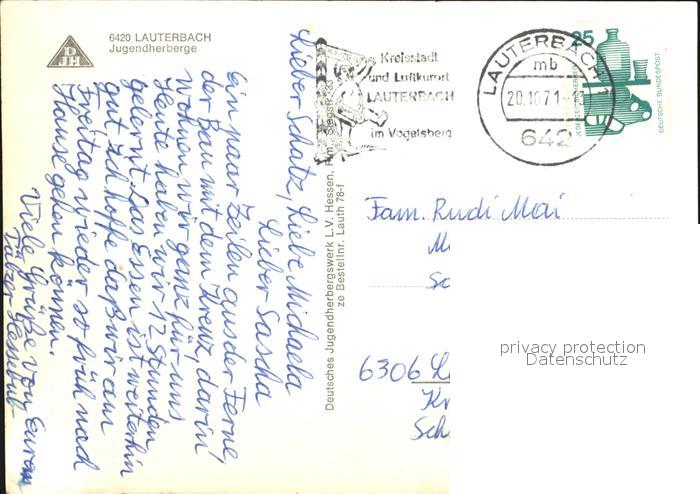 6420 LAUTERBACH
Jugendherberge
DJH
Lieber Schatz, Liebe Michaela
Lieber Sascha
Ein paar Zeilen aus der Ferne
der Bau mit dem Kreuz, darin
wohnen wir ganz für uns
Heute haben wir 12 Stunden
gelernt. Das Essen ist weiterhin
gut. Ich hoffe daß wir am
Freitag wieder so früh nach
Hause gehen können.
Viele Grüße von Eurem
Deutsches Jugendherbergswerk L.V. Hessen,
ze Bestellnr. Lauth 78-f
Kreisstadt
und Luftkurort
LAUTERBACH
im Vogelsberg
LAUTERBACH 1
mb
20.10.71
642
25
DEUTSCHE BUNDESPOST
Fam. Rudi Mai
6306
privacy protection
Datenschutz